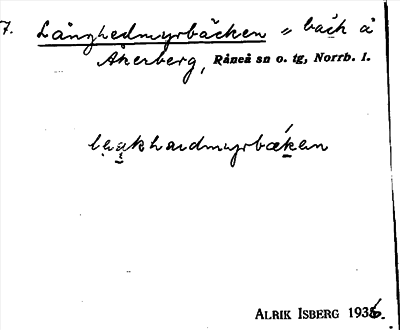 7. Långhedmyrbäcken = bäck å
Åkerberg, Råneå sn o. tg, Norrb. l.
ALRIK ISBERG 1936.